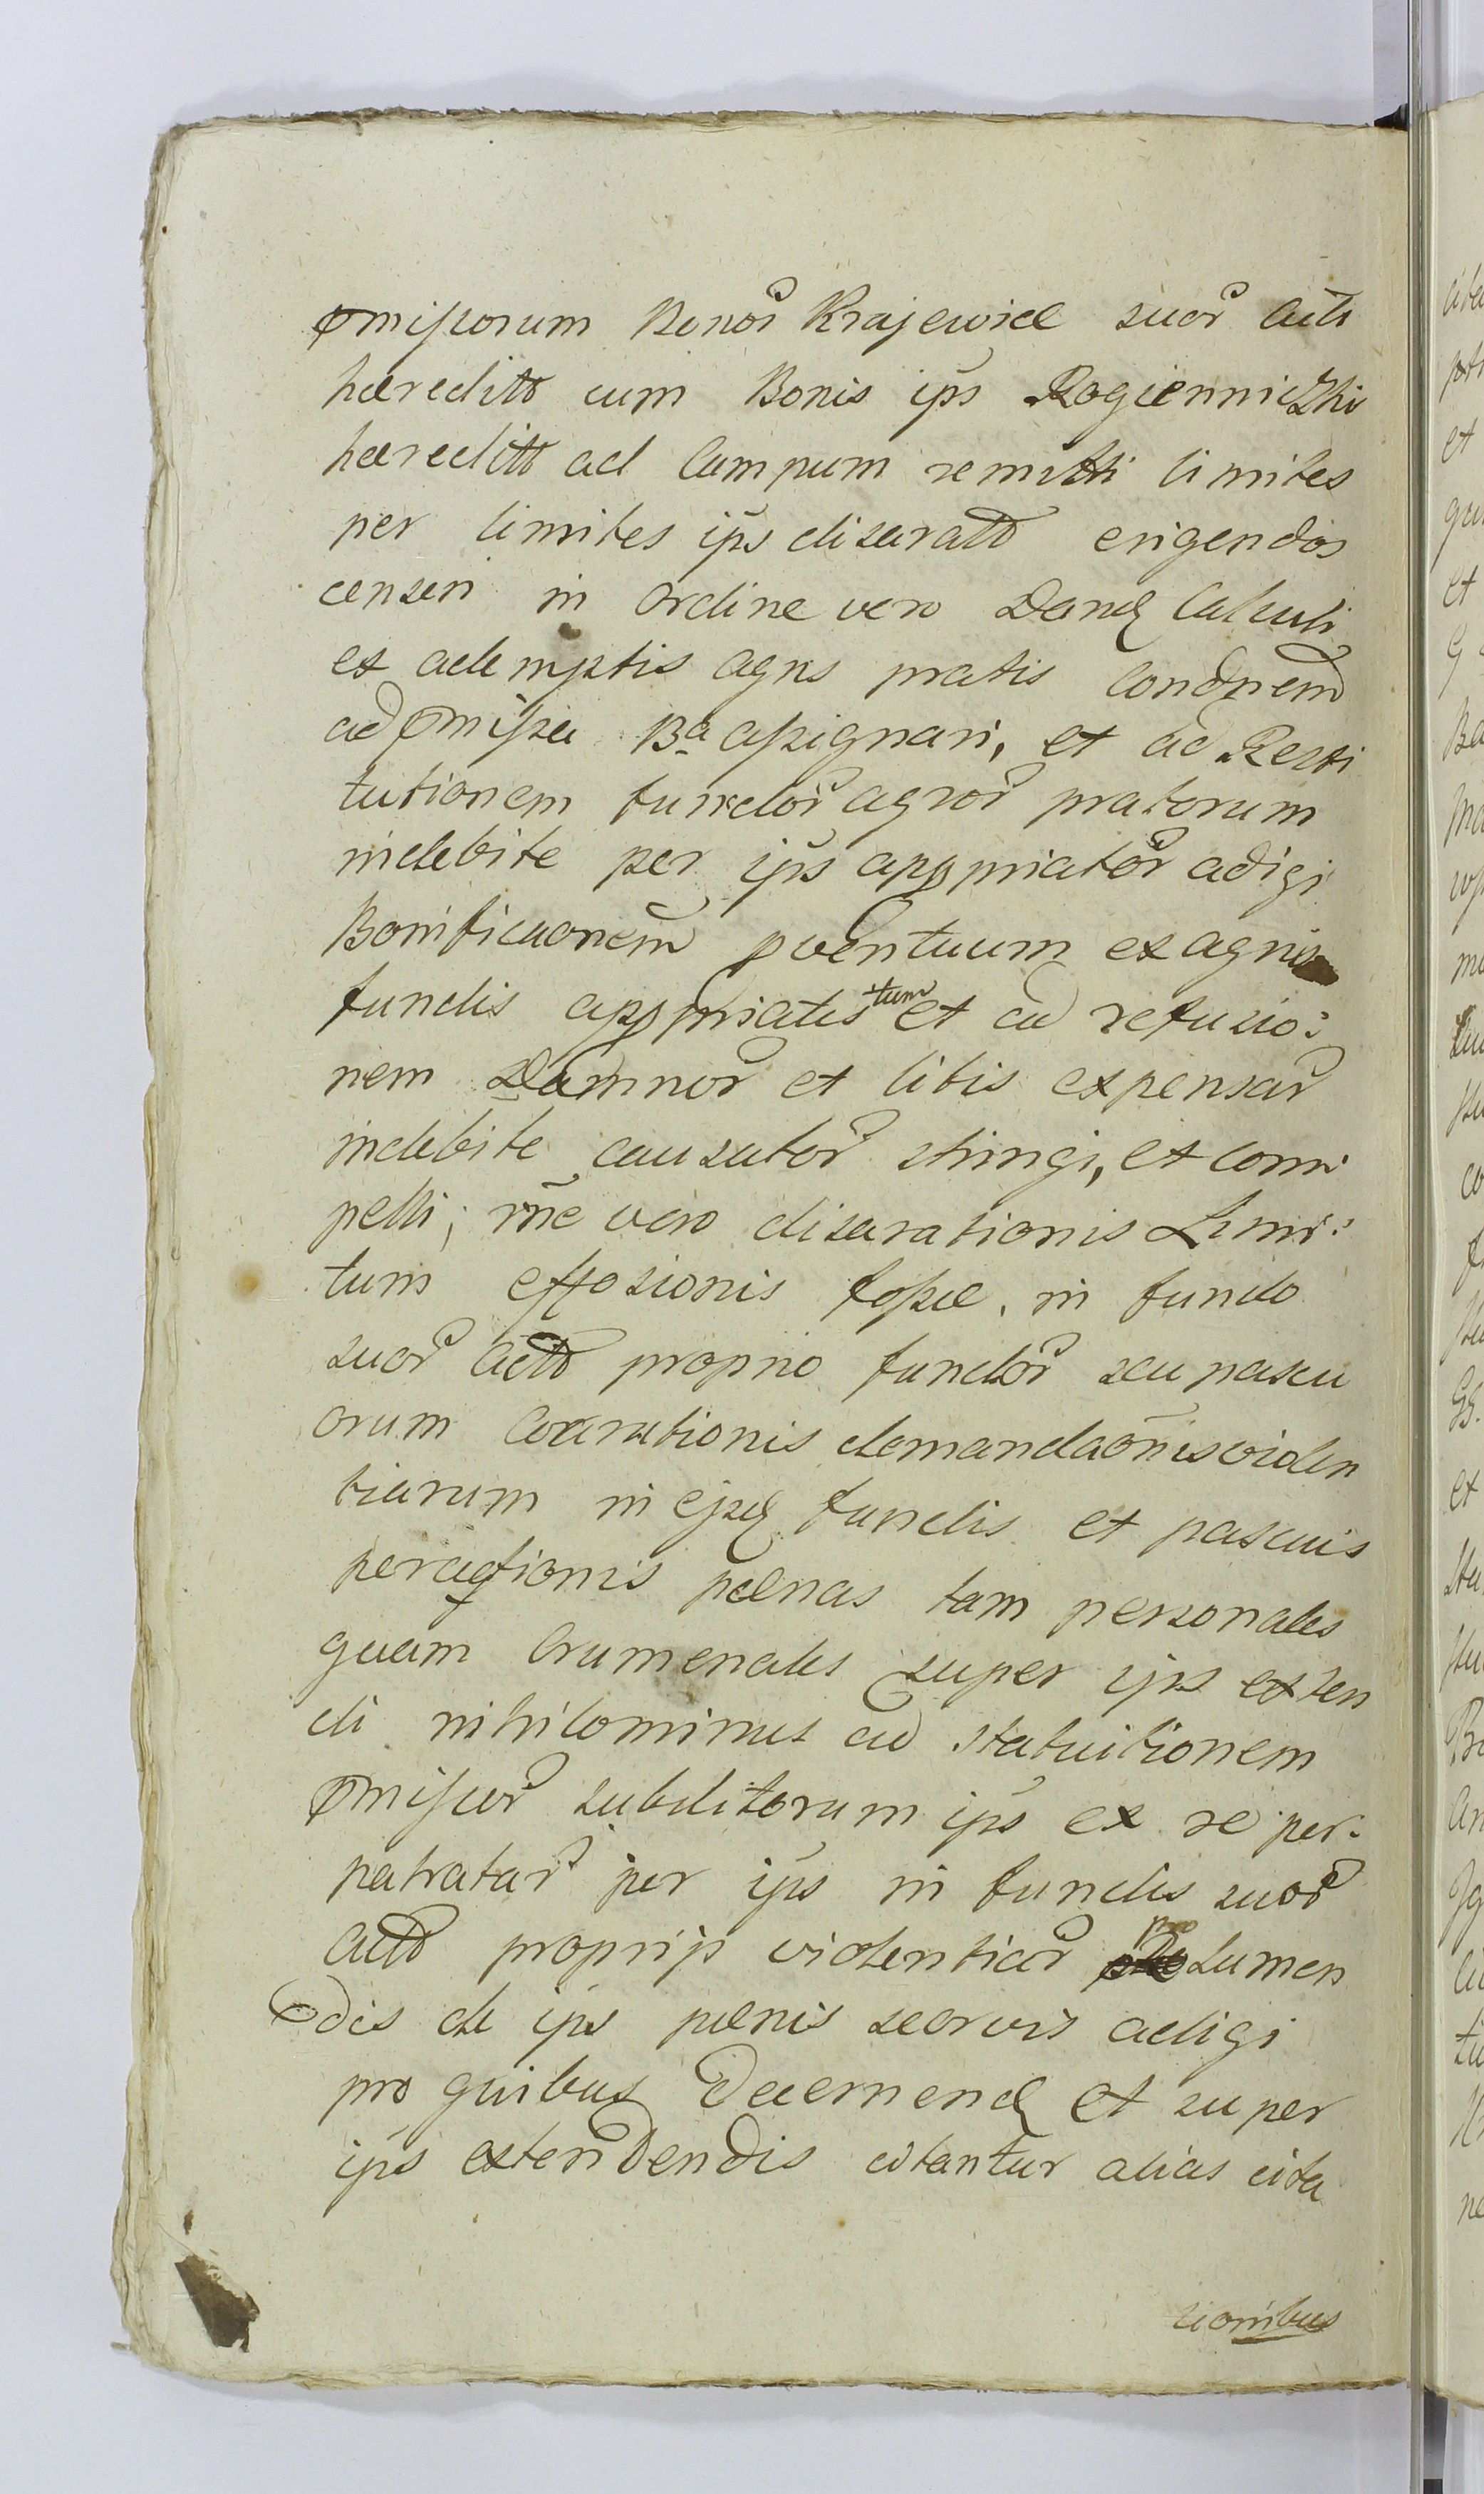 pmissorum Bonor Krajewice suor actt
haereditt cum Bonis ips Rogienniczki
haereditt ad Campum remitti limites
per limites ips disaratt erigendos
censeri in ordine vero Dandq Calculi
ex ademptis agris pratis Condnem
ad pmissa Ba assignari, et ad Resti
tutionem fundor agror pratorum
indebite per ips appriator adigi
Bonificaonem pventuum ex agris
fundis appriatis tum et ad refusio:
nem Damnor et litis expensar
indebite causator stringi, et com
pelli; rne vero disarationis Limi:
tum effosionis fossae, in fundo
suor actt proprio fundor seu pascu
orum Coaarationis demandaonis violen
tiarum in ejsdq fundis et pascuis
peractionis paenas tam personales
quam Crumenales super ips exten
di nihilominus ad statuitionem
pmissor subditorum ips ex re per:
patratar per ips in fundis suor
actt proprijs violentiar pro sumen
dis de ips paenis seorvis adigi
pro quibus Decernendq et super
ips extendendis citantur alias cita
tionibus